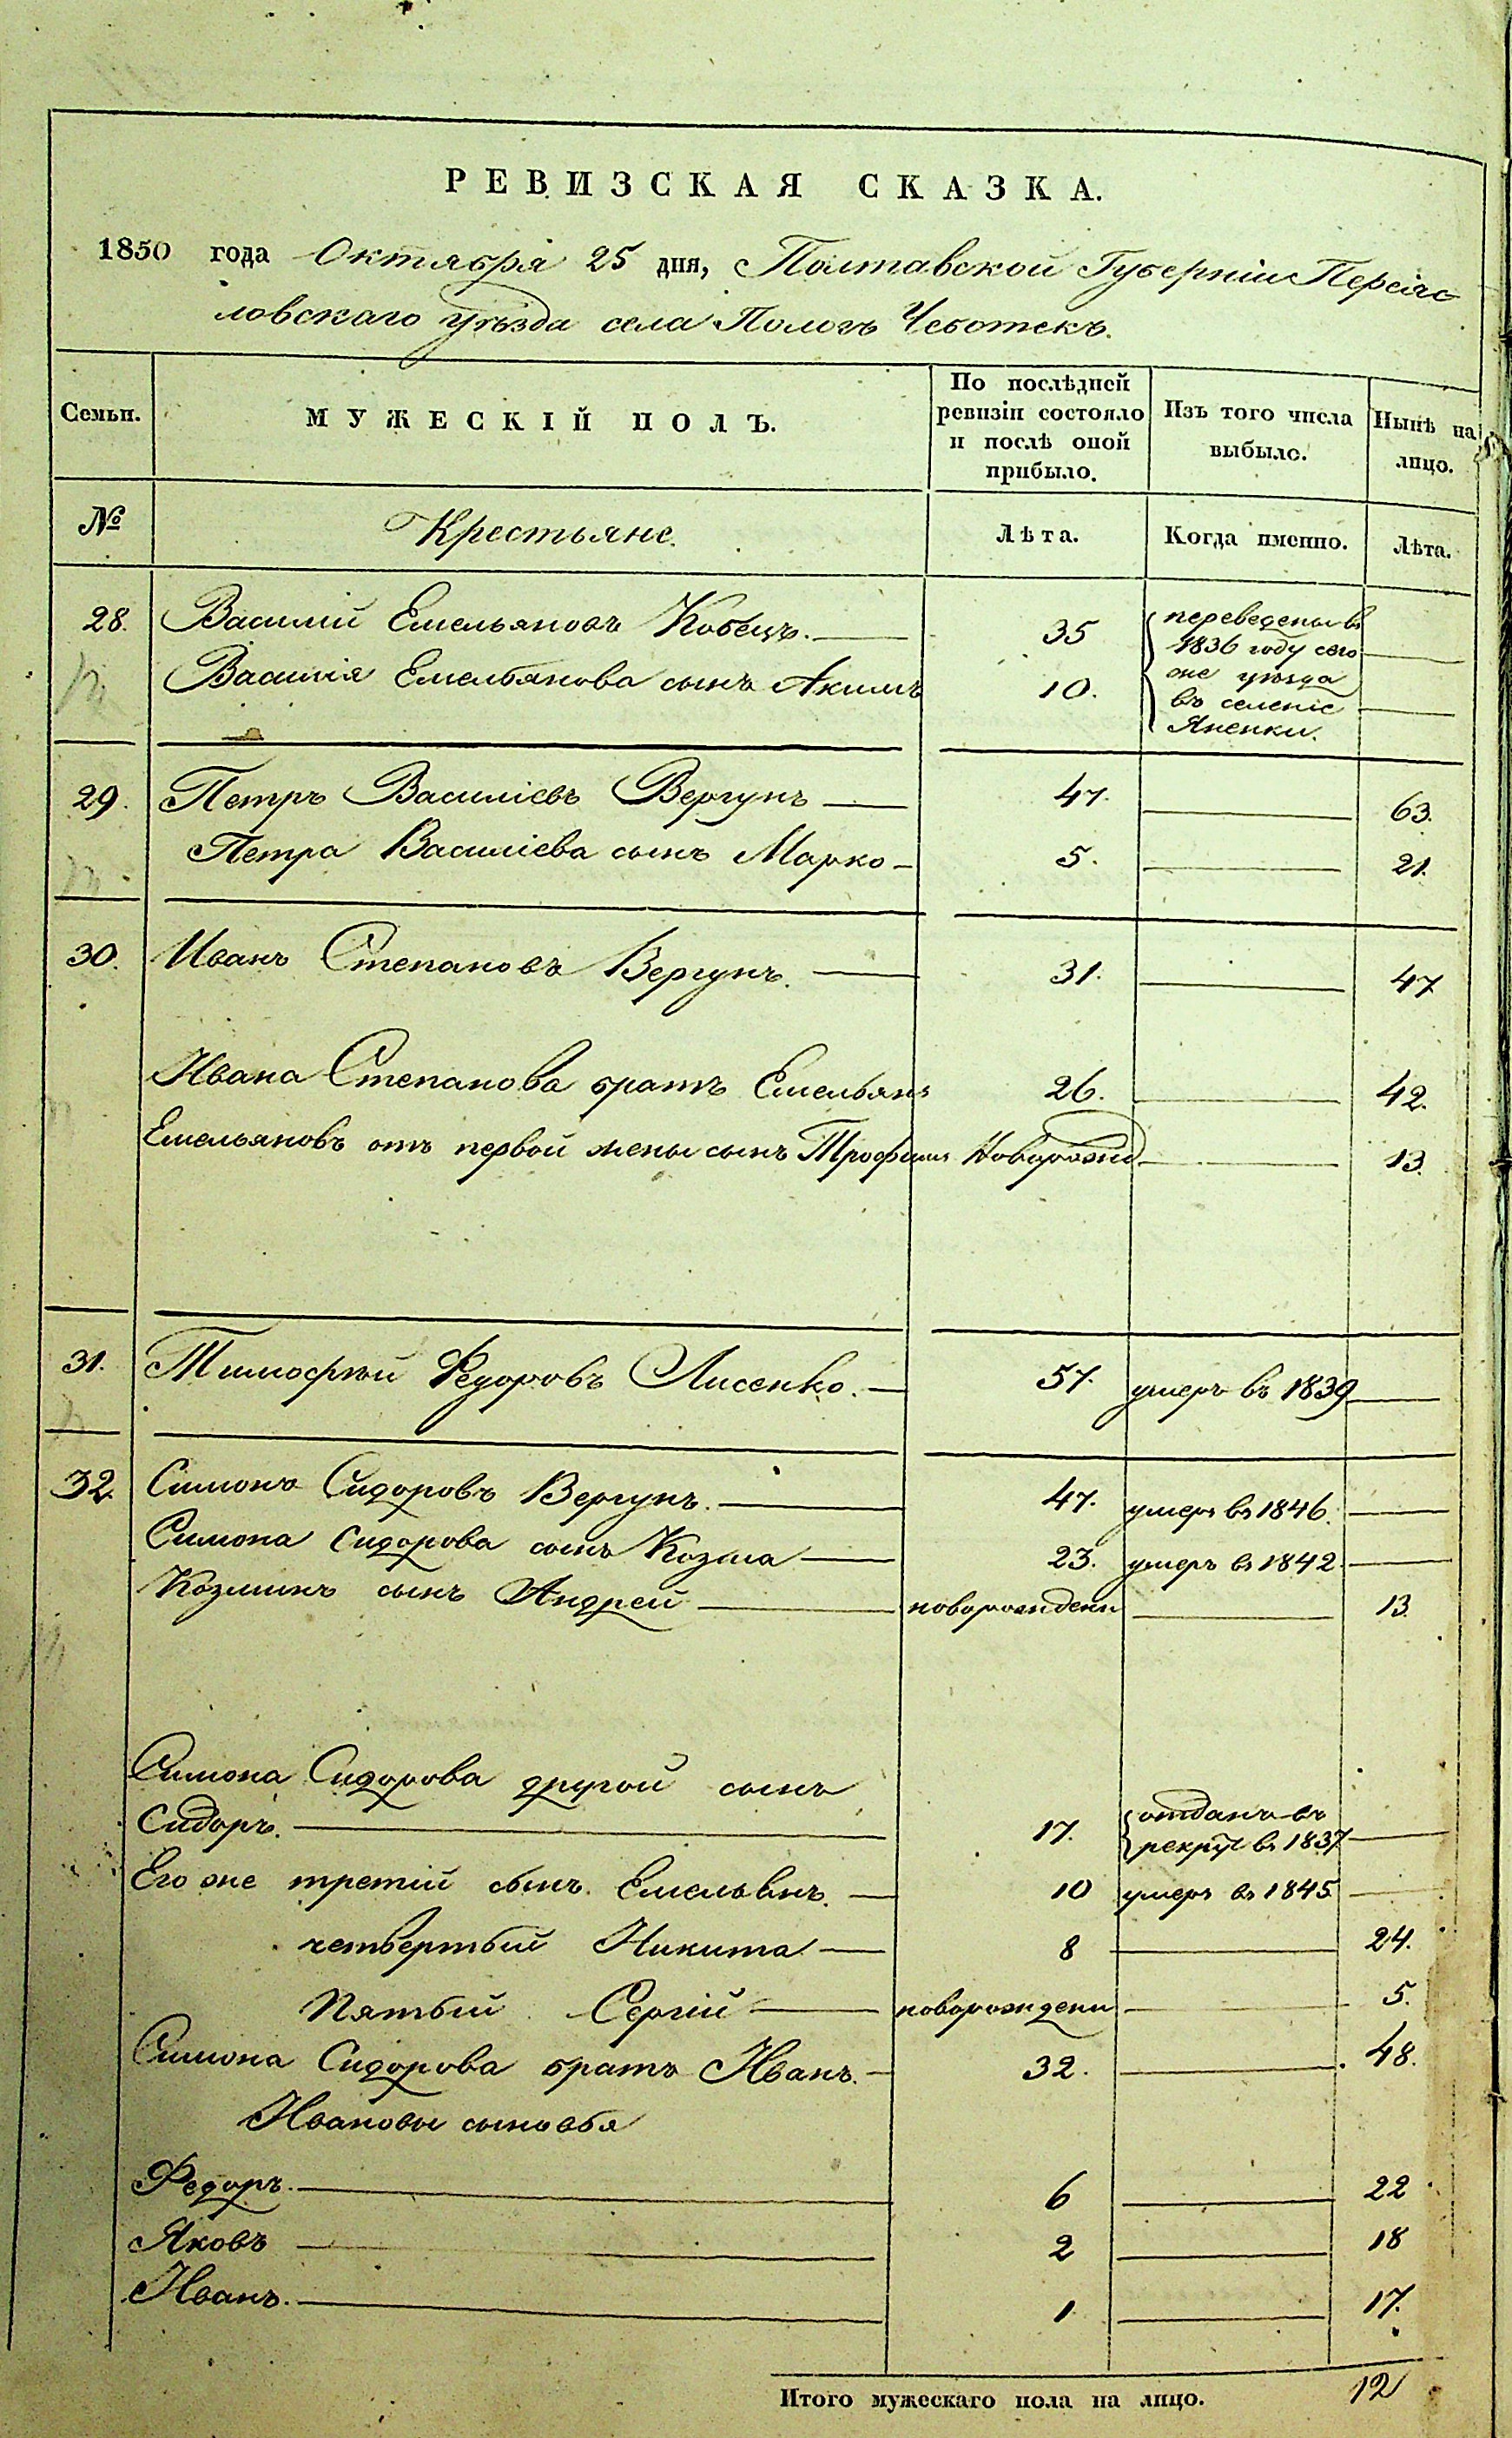 РЕВИЗСКАЯ СКАЗКА.
1850 года Октября 25 дня, Полтавской Губерніи Переяс
ловскаго уѣзда села Пологъ Чеботекъ.
Семьи.
МУЖЕСКІЙ ПОЛЪ.
По послѣдней
ревизіи состояло
и послѣ оной
прибыло.
Изъ того числа
выбыло.
Нынѣ на
лицо.
№ Крестьяне. Лѣта. Когда именно. Лѣта.
28. Василій Емельяновъ Кобецъ. 35
Василія Емельянова сынъ Акимъ 10.
переведены въ
1836 году сего
же уѣзда
въ селеніе
Яненки.
29. Петръ Василіевъ Вергунъ 47. 63.
Петра Василіева сынъ Марко 5. 21.
30. Иванъ Степановъ Вергунъ. 31. 47
Ивана Степанова братъ Емельянъ 26. 42.
Емельяновъ отъ первой жены сынъ Трофимъ Новорожд 13.
31. Тимофѣй Федоровъ Лисенко. 57. умеръ въ 1839
32. Симонъ Сидоровъ Вергунъ. 47. умеръ въ 1846.
Симона Сидорова сынъ Козма 23. умеръ въ 1842.
Козминъ сынъ Андрей новорожденъ 13.
Симона Сидорова другой сынъ
Сидоръ. 17. отданъ въ
рекрут въ 1837
Его же третій сынъ Емельянъ. 10 умеръ въ 1845
четвертый Никита 8 24.
Пятый Сергій новорожденъ 5.
Симона Сидорова братъ Иванъ. 32. 48.
Ивановы сыновья
Федоръ. 6 22
Яковъ 2 18
Иванъ. 1 17.
Итого мужескаго пола на лицо. 12